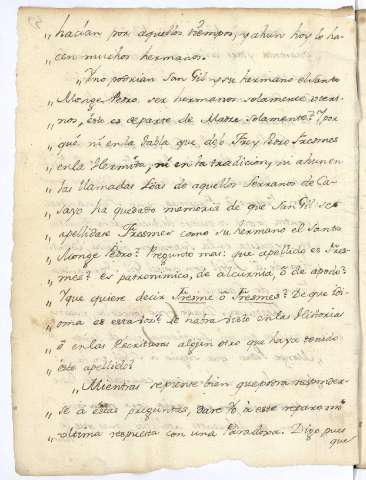 „ hacían por aquellos tiempos, y ahun hoy lo ha-
„ cen muchos hermanos.
„ Y no podrían San Gil y su hermano el Santo
„ Monge Pedro ser hermanos solamente uteri-
„ nos, esto es de parte de Madre solamente? Y por
„ qué ni en la Tabla que dejó Frey Pedro Fresmes
„ en la Hermita, ni en la tradicion, ni ahun en
„ las llamadas Loas de aquellos Serranos de Ca-
„ sayo ha quedado memoria de que San Gil se
„ apellidase Fresmes como su hermano el Santo
„ Monge Pedro? Pregunto mas: que apellido es Fres-
„ mes? es patronimico, de alcurnia, ò de apodo?
„ Y que quiere decir Fresme ò Fresmes? De que Idi-
„ oma es esta voz? Se habra visto en las Historias
„ ò en las Escrituras algun otro que haya tenido
„ este apellido?
„ Mientras se piense bien que podra responder-
„ se à estas preguntas, daré Yo à este reparo mi
„ ultima respuesta con una Paradoxa. Digo pues
que